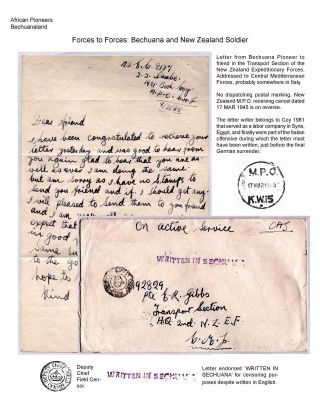 African Pioneers
Bechuanaland
Forces to Forces: Bechuana and New Zealand Soldier
Letter from Bechuana Pioneer to
friend in the Transport Section of the
New Zealand Expeditionary Forces.
Addressed to Central Mediterranean
Forces, probably somewhere in Italy.
No dispatching postal marking. New
Zealand M.P.O. receiving cancel dated
17 MAR 1945 is on reverse.
The letter writer belongs to Coy 1981
that served as a labor company in Syria,
Egypt, and finally were part of the Italian
offensive during which the letter must
have been written, just before the final
German surrender.
Dear friend
I have been congratulated to recieve your
letter yesterday and was good to hear from
you again glad to hear that you are as
well as ever I am doing the same
but am sorry as I have no stamps to
send you friend and if I should get any
I will pleased to send them to you friend
and I am
expect that
in good
same
to the
hope to
kind
M.P.O.
K.W.15
On active service
WRITTEN IN SECHUANA
Pte E.R. Gibbs
Transport Section
HQ 2nd N.Z.E.F.
C.M.F.
Deputy
Chief
Field Cen-
sor.
WRITTEN IN SECHUANA
Letter endorsed 'WRITTEN IN
SECHUANA' for censoring pur-
poses despite written in English.